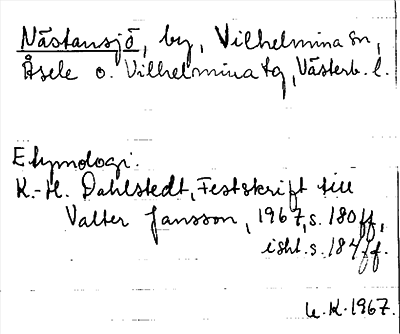 Nästansjö, by, Vilhelmina sn,
Åsele o. Vilhelmina tg, Västerb. l.
Etymologi.
K.-H. Dahlstedt, Festskrift till
Valter Jansson, 1967, s. 180ff,
isht. s. 184ff.
U.K. 1967.